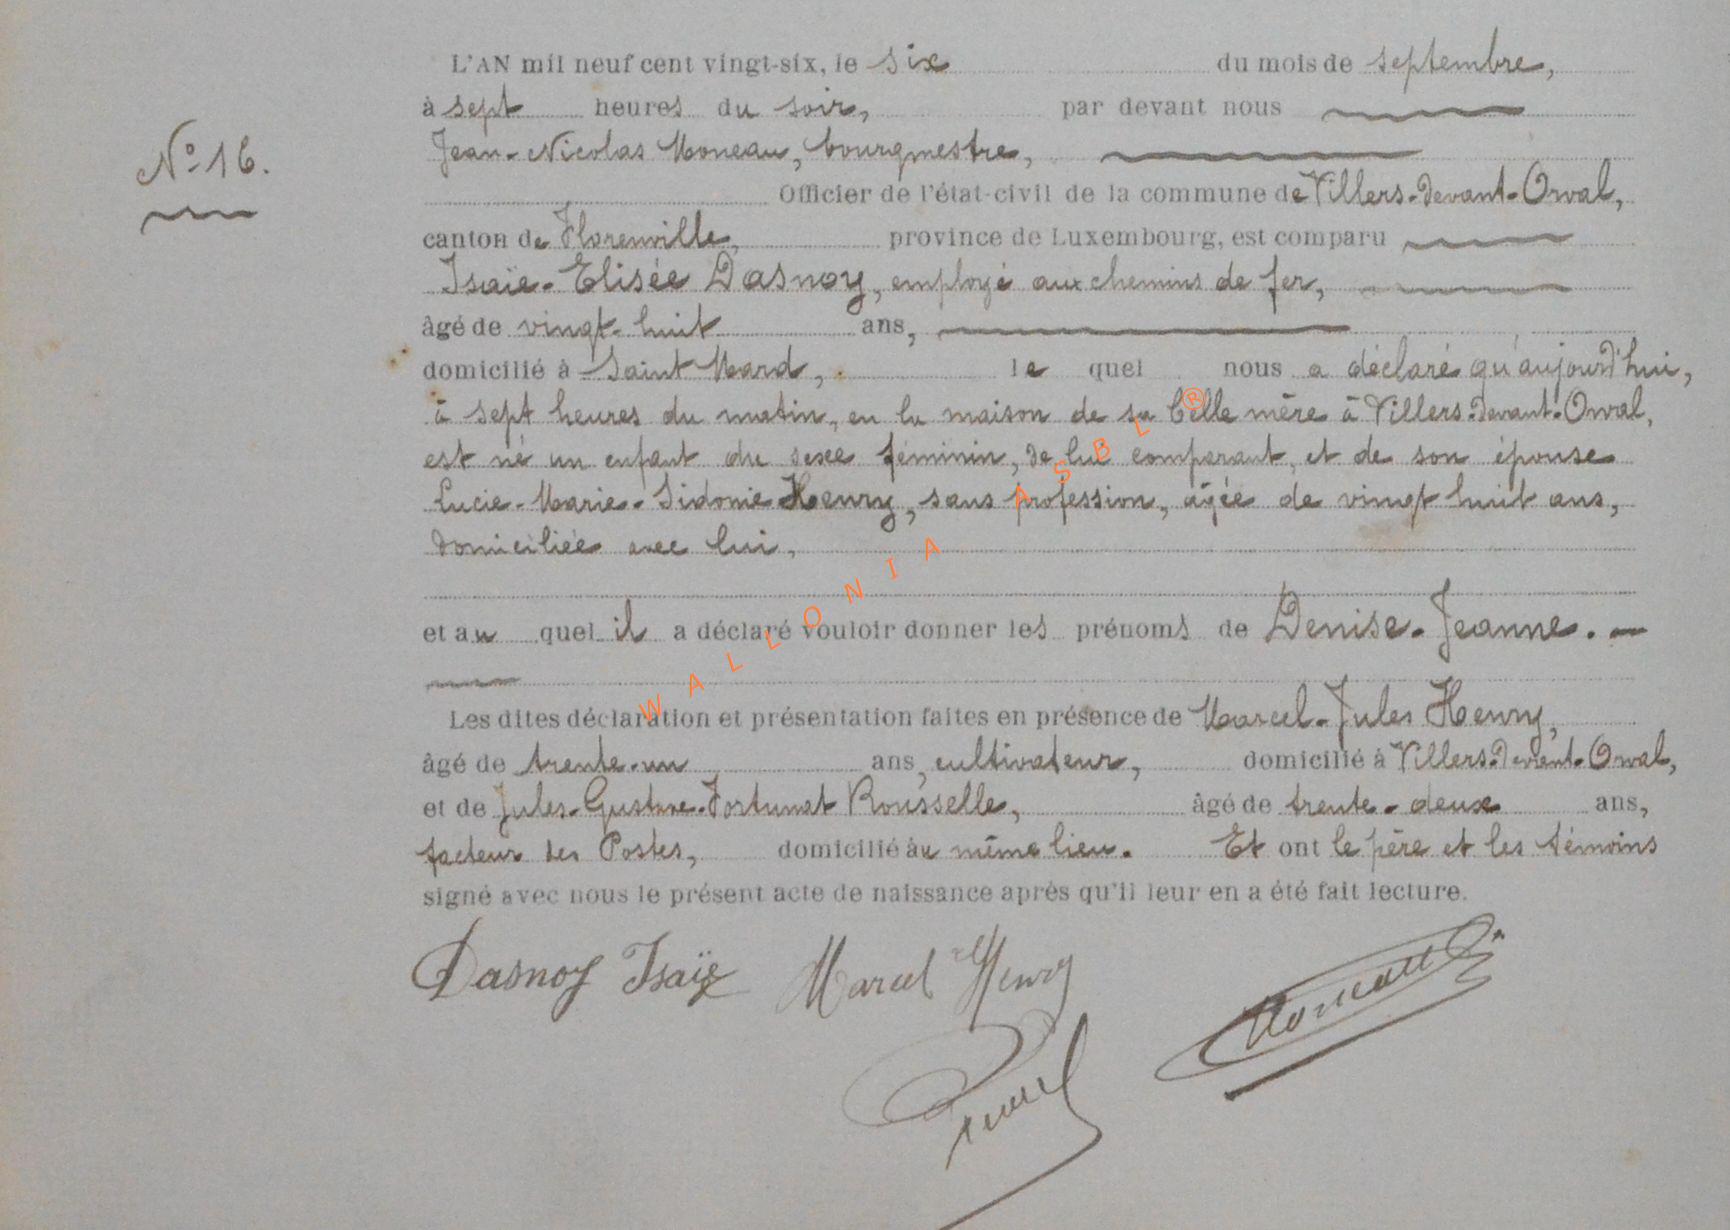 L'AN mil neuf cent vingt-six, le six du mois de septembre,
à sept heures du soir, par devant nous
Jean-Nicolas Moneau, bourgmestre,
N° 16.
Officier de l'état-civil de la commune de Villers-devant-Orval,
canton de Florenville, province de Luxembourg, est comparu
Isaïe-Elisée Dasnoy, employé aux chemins de fer,
âgé de vingt-huit ans,
domicilié à Saint Mard, le quel nous a déclaré qu'aujourd'hui,
à sept heures du matin, en la maison de sa belle mère à Villers-devant-Orval,
est né un enfant du sexe féminin, de lui comparant, et de son épouse
Lucie-Marie-Sidonie Henry, sans profession, âgée de vingt huit ans,
domiciliée avec lui,
et au quel il a déclaré vouloir donner les prénoms de Denise-Jeanne.
Les dites déclaration et présentation faites en présence de Marcel-Jules Henry,
âgé de trente-un ans, cultivateur, domicilié à Villers-Devant-Orval,
et de Jules-Gustave-Fortunat Rousselle, âgé de trente-deux ans,
facteur des Postes, domicilié au même lieu. Et ont le père et les témoins
signé avec nous le présent acte de naissance après qu'il leur en a été fait lecture.
Dasnoy Isaïe Marcel Henry Moneau
WALLONIA ASBL ®